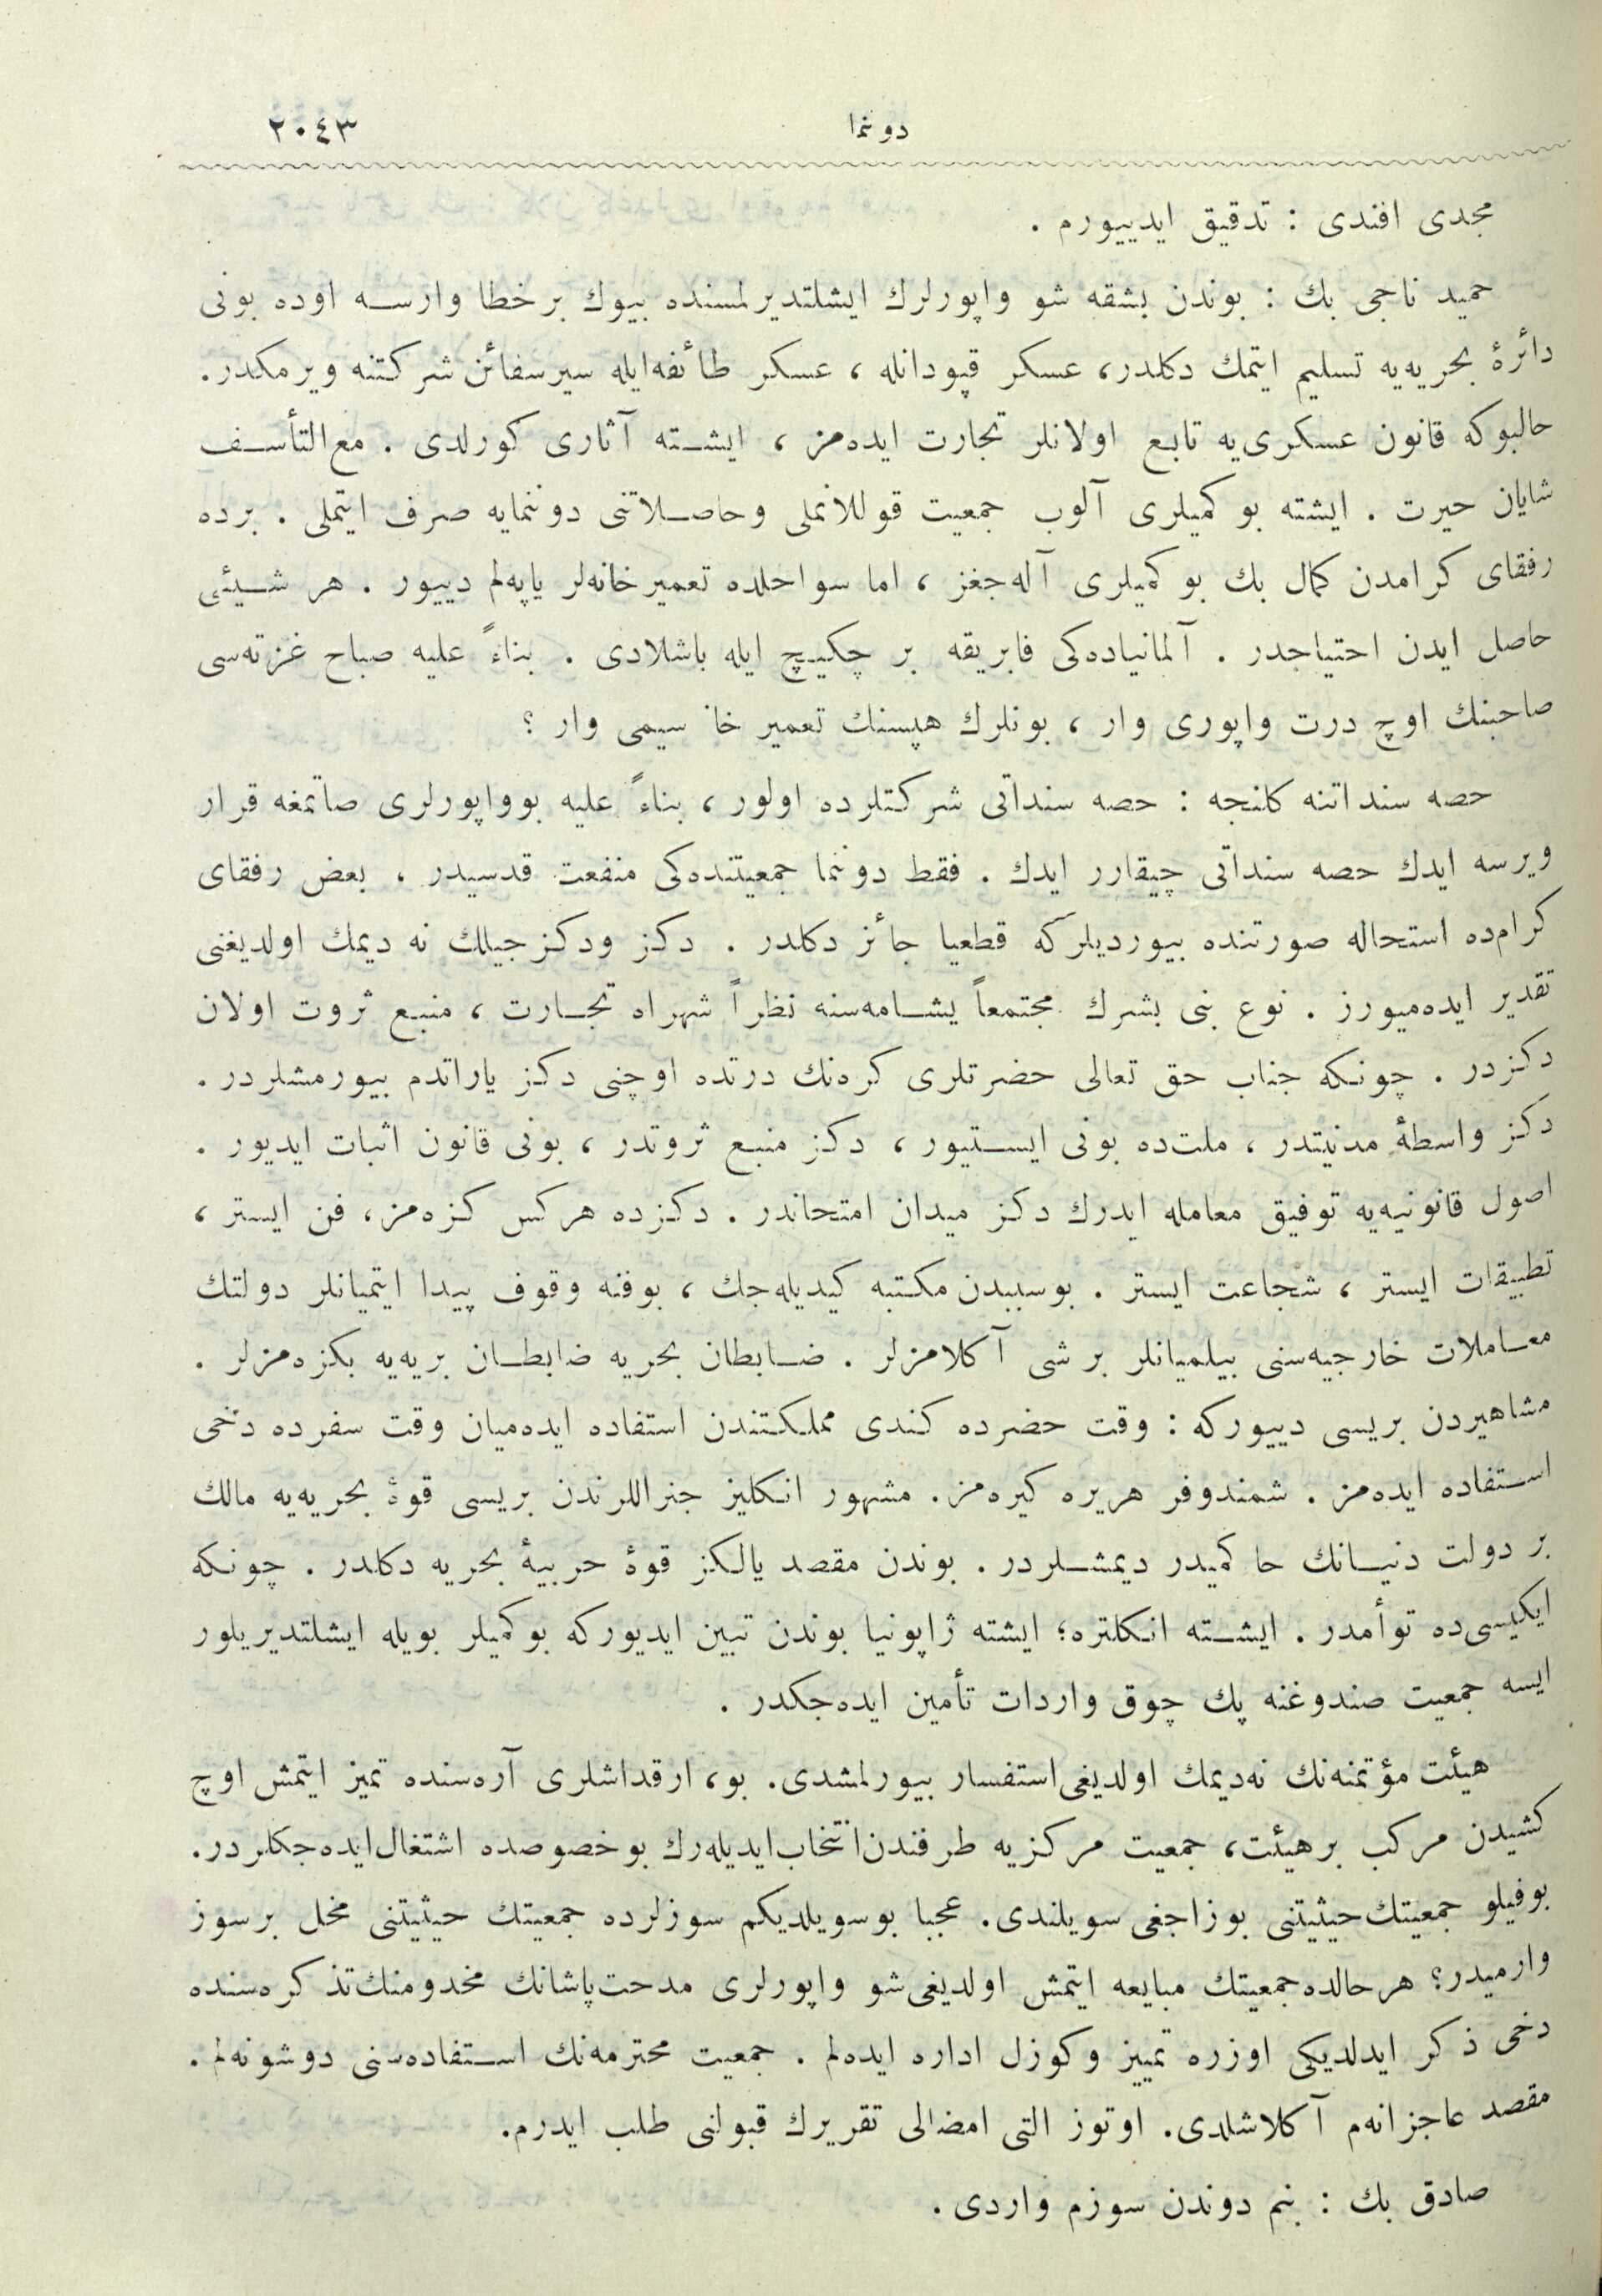 دوننما
٢٠٤٣
مجدی افندی : تدقیق ایدییورم .
حمید ناجی بك : بوندن بشقه شو واپورلرك ایشلتدیرلمسنده بیوك بر خطا وارسه اوده بونی
دائرۀ بحریه‌یه تسلیم ایتمك دكلدر، عسكر قپودانله ، عسكر طائفه‌ایله سیرسفائن شركتنه ویرمكدر.
حالبوكه قانون عسكری‌یه تابع اولانلر تجارت ایده‌مز ، ایشته آثاری كورلدی . مع‌التأسف
شایان حیرت . ایشته بو كمیلری آلوب جمعیت قوللانملی وحاصلاتنی دوننمایه صرف ایتملی . برده
رفقای كرامدن كمال بك بو كمیلری آله‌جغز ، اما سواحلده تعمیرخانه‌لر یاپه‌لم دییور . هر شیئی
حاصل ایدن احتیاجدر . آلمانیاده‌كی فابریقه بر چكیچ ایله باشلادی . بناءً علیه صباح غزته‌سی
صاحبنك اوچ درت واپوری وار ، بونلرك هپسنك تعمیر خا سیمی وار ؟
حصه سنداتنه كلنجه : حصه سنداتی شركتلرده اولور ، بناءً علیه بوواپورلری صاتمغه قرار
ویرسه ایدك حصه سنداتی چیقارر ایدك . فقط دوننما جمعیتنده‌كی منفعت قدسیدر . بعض رفقای
كرام‌ده استحاله صورتنده بیوردیلركه قطعیا جائز دكلدر . دكز ودكزجیلك نه دیمك اولدیغنی
تقدیر ایده‌میورز . نوع بنی بشرك مجتمعاً یشامه‌سنه نظراً شهراه تجارت ، منبع ثروت اولان
دكزدر . چونكه جناب حق تعالی حضرتلری كره‌نك درتده اوچنی دكز یاراتدم بیورمشلردر .
دكز واسطۀ مدنیتدر ، ملت‌ده بونی ایستیور ، دكز منبع ثروتدر ، بونی قانون اثبات ایدیور .
اصول قانونیه‌یه توفیق معامله ایدرك دكز میدان امتحاندر . دكزده هركس كزه‌مز، فن ایستر ،
تطبیقات ایستر ، شجاعت ایستر . بوسببدن مكتبه كیدیله‌جك ، بوفنه وقوف پیدا ایتمیانلر دولتك
معاملات خارجیه‌سنی بیلمیانلر بر شی آكلامزلر . ضابطان بحریه ضابطان بریه‌یه بكزه‌مزلر .
مشاهیردن بریسی دییوركه : وقت حضرده كندی مملكتندن استفاده ایده‌میان وقت سفرده دخی
استفاده ایده‌مز . شمندوفر هریره كیره‌مز . مشهور انكلیز جنراللرندن بریسی قوۀ بحریه‌یه مالك
بر دولت دنیانك حاكمیدر دیمشلردر . بوندن مقصد یالكز قوۀ حربیۀ بحریه دكلدر . چونكه
ایكیسی‌ده توأمدر . ایشته انكلتره؛ ایشته ژاپونیا بوندن تبین ایدیوركه بوكمیلر بویله ایشلتدیریلور
ایسه جمعیت صندوغنه پك چوق واردات تأمین ایده‌جكدر .
هیئت مؤتمنه‌نك نه‌دیمك اولدیغی استفسار بیورلمشدی. بو، ارقداشلری آره‌سنده تمیز ایتمش اوچ
كشیدن مركب برهیئت، جمعیت مركزیه طرفندن انتخاب‌ایدیله‌رك بو خصوصده اشتغال‌ایده‌جكلردر.
بوفیلو جمعیتك حیثیتنی بوزاجغی سویلندی. عجبا بوسویلدیكم سوزلرده جمعیتك حیثیتنی مخل برسوز
وارمیدر؟ هر حالده جمعیتك مبایعه ایتمش اولدیغی شو واپورلری مدحت‌پاشانك مخدومنك تذكره‌سنده
دخی ذكر ایدلدیكی اوزره تمییز وكوزل اداره ایده‌لم . جمعیت محترمه‌نك استفاده‌سنی دوشونه‌لم .
مقصد عاجزانه‌م آكلاشلدی. اوتوز التی امضالی تقریرك قبولنی طلب ایدرم.
صادق بك : بنم دوندن سوزم واردی .